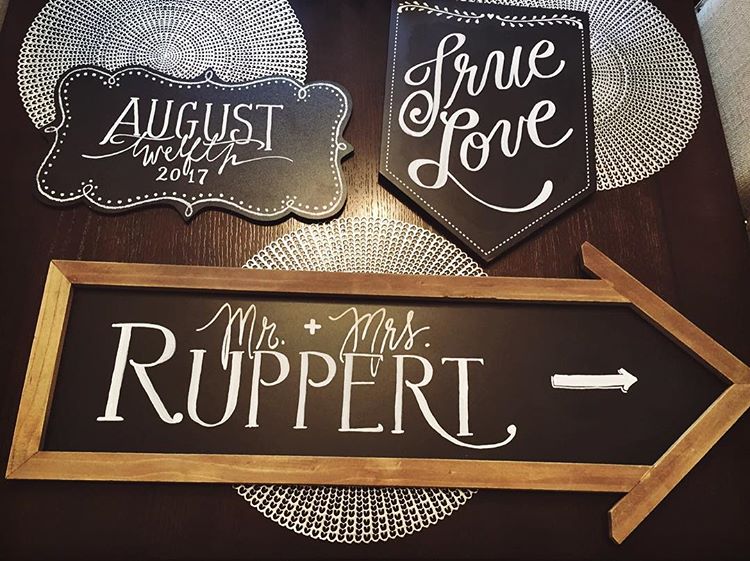 AUGUST
twelfth
2017
True
Love
Mr. + Mrs.
RUPPERT